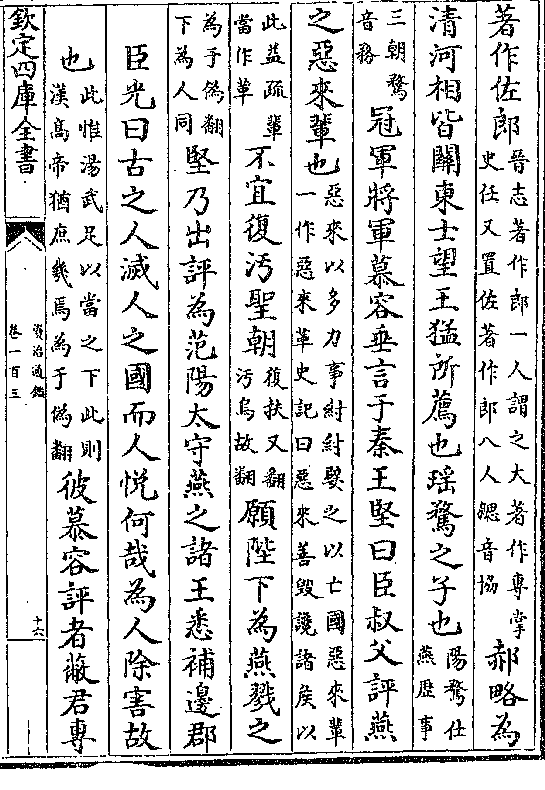 著作佐郎晉志著作郎一人謂之大著作專掌史任又置佐著作郎八人勰音協郝略為
清河相皆關東士望王猛所薦也瑶騖之子也陽騖仕燕歷事
三朝騖音務冠軍將軍慕容垂言于秦王堅曰臣叔父評燕
之惡來輩也惡來以多力事紂紂嬖之以亡國惡來輩一作惡來革史記曰惡來善毁讒諸侯以
此益疏輩當作革不宜復汚聖朝復扶又翻汚烏故翻願陛下為燕戮之
為于偽翻下為人同堅乃出評為范陽太守燕之諸王悉補邊郡
臣光曰古之人滅人之國而人悦何哉為人除害故
也此惟湯武足以當之下此則漢高帝猶庶幾焉為于偽翻彼慕容評者蔽君專
欽定四庫全書
資治通鑑
卷一百三
十六